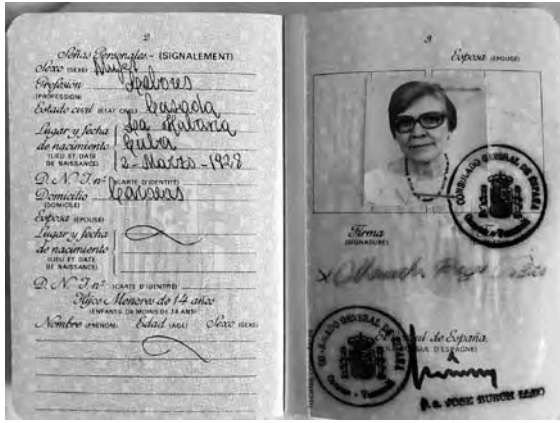 2
Señas Personales.- (SIGNALEMENT)
Sexo (SEXE) Mujer
Profesión Labores
(PROFESSION)
Estado civil (ÉTAT CIVIL) Casada
Lugar y fecha La Habana
de nacimiento Cuba
(LIEU ET DATE
DE NAISSANCE) 2-Marzo-1928
D. N. I. nº (CARTE D'IDENTITÉ)
Domicilio Caracas
(DOMICILE)
Esposa (EPOUSE)
Lugar y fecha
de nacimiento
(LIEU ET DATE
DE NAISSANCE)
D. N. I. nº (CARTE D'IDENTITÉ)
Hijos Menores de 14 años
(ENFANTS DE MOINS DE 14 ANS)
Nombre (PRÉNOM) Edad (AGE) Sexo (SEXE)
3
Esposa (EPOUSE)
CONSULADO GENERAL DE ESPAÑA
Firma
(SIGNATURE)
CONSULADO GENERAL DE ESPAÑA
Caracas - Venezuela
Cónsul de España,
D'ESPAGNE)
JOSE